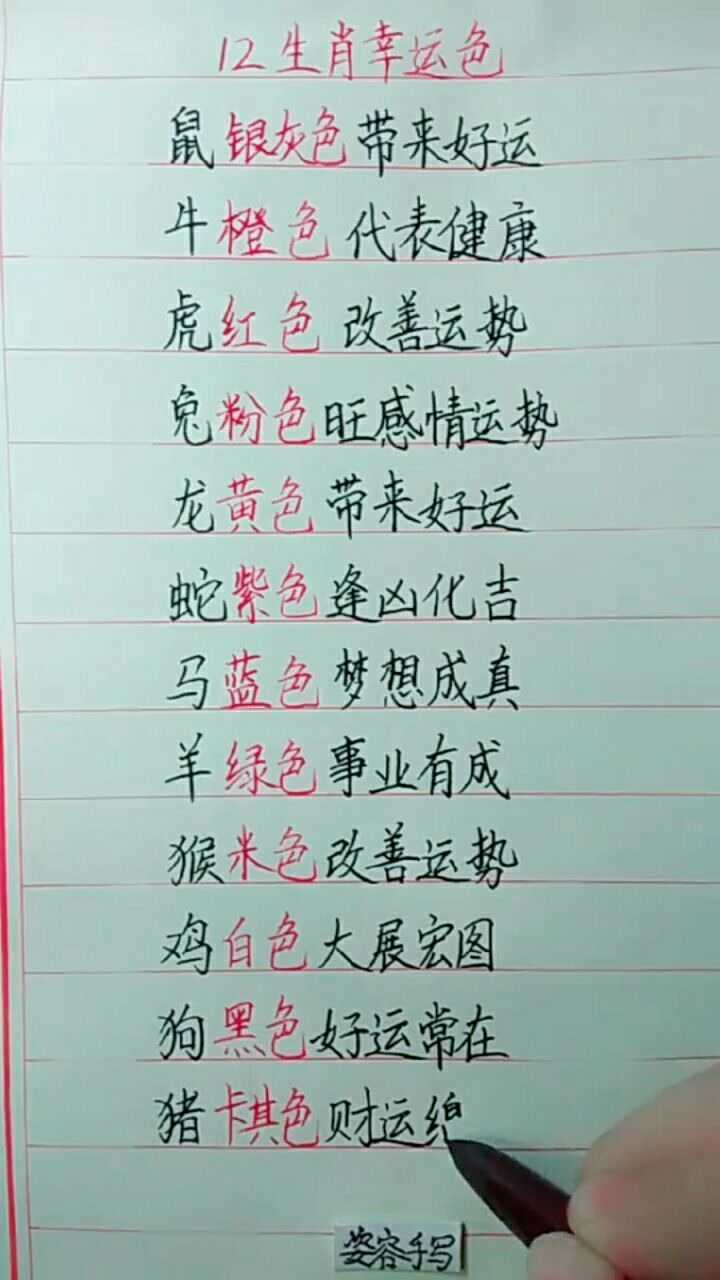 12生肖幸运色
鼠银灰色带来好运
牛橙色代表健康
虎红色改善运势
兔粉色旺感情运势
龙黄色带来好运
蛇紫色逢凶化吉
马蓝色梦想成真
羊绿色事业有成
猴米色改善运势
鸡白色大展宏图
狗黑色好运常在
猪卡其色财运
姿容手写